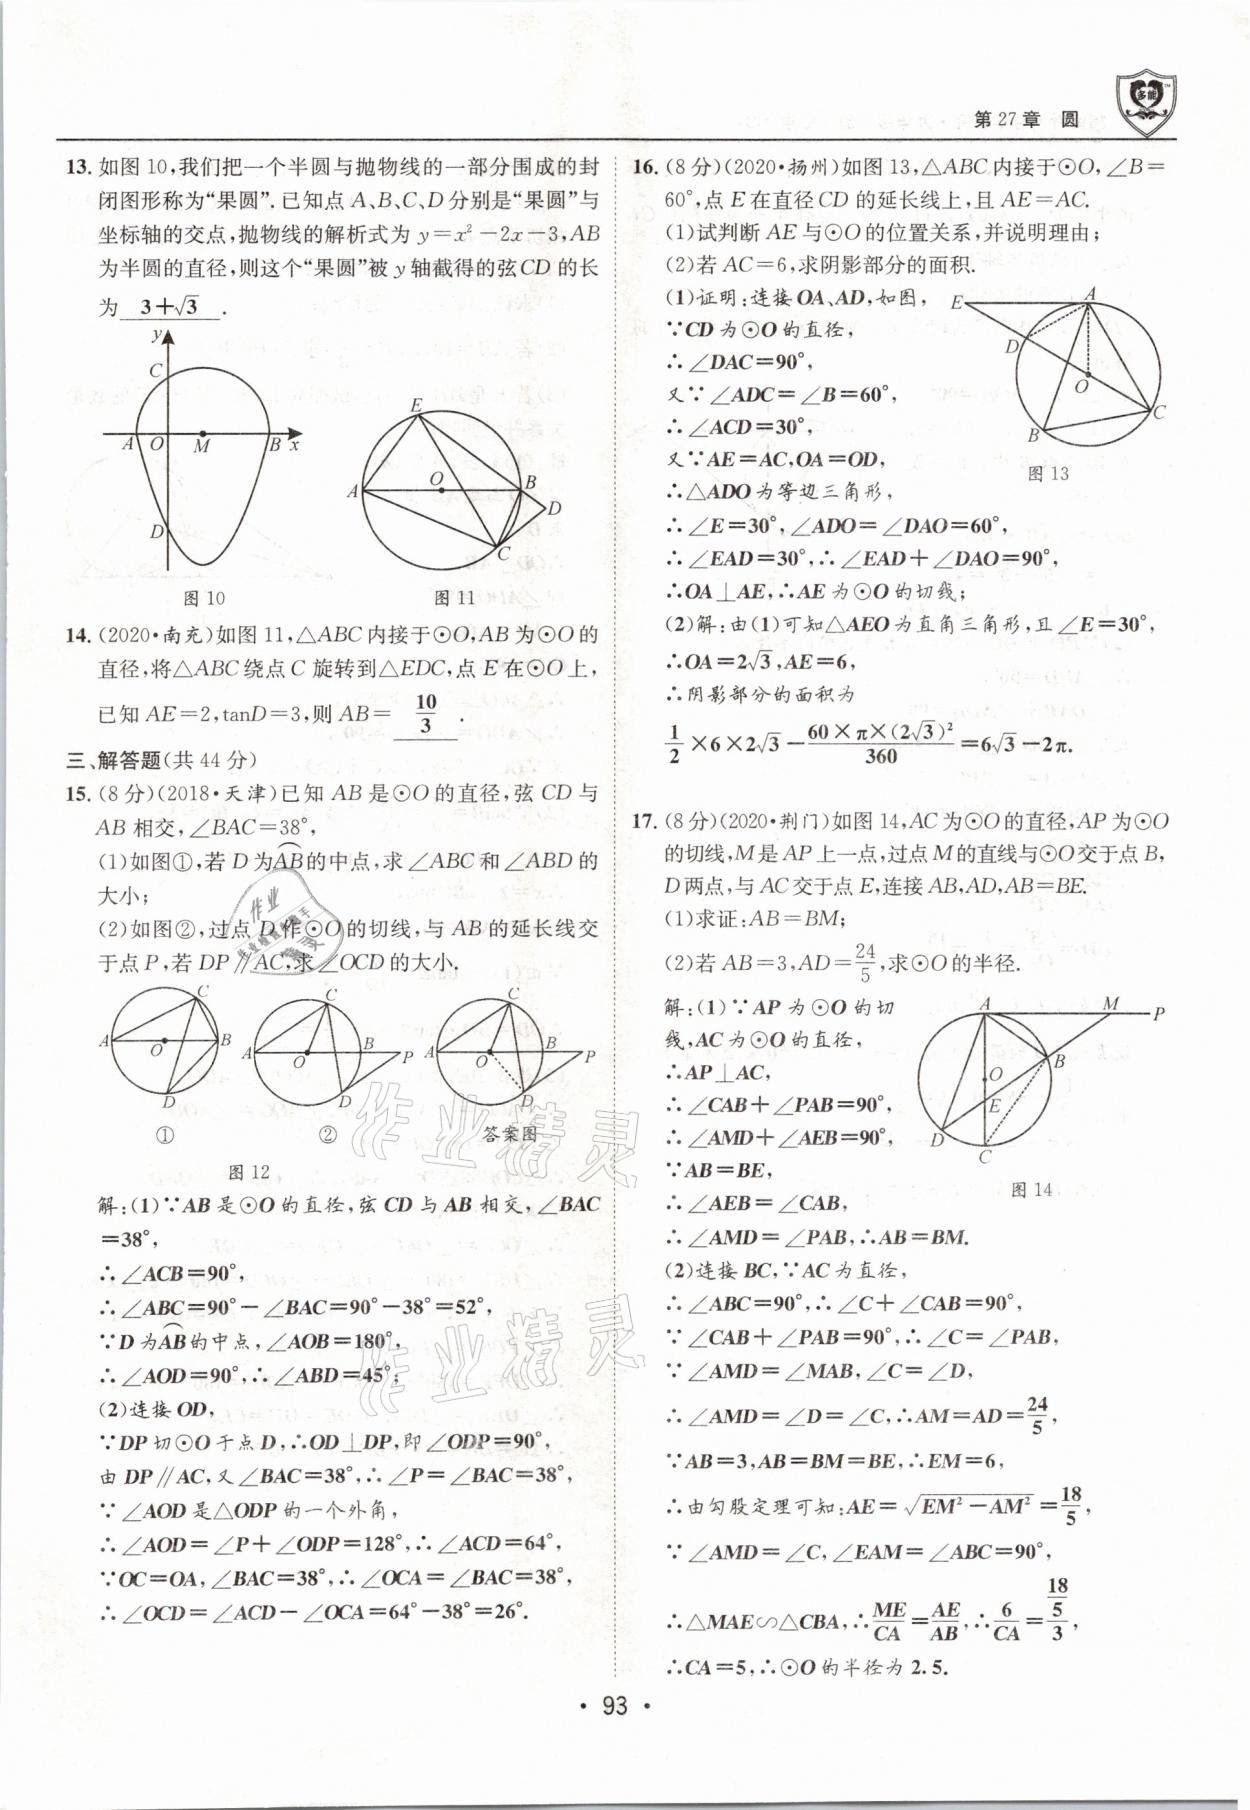 第27章 圆
多能
13. 如图10,我们把一个半圆与抛物线的一部分围成的封
闭图形称为“果圆”. 已知点A、B、C、D分别是“果圆”与
坐标轴的交点,抛物线的解析式为y=x²-2x-3,AB
为半圆的直径,则这个“果圆”被y轴截得的弦CD的长
为 3+√3 .
y
C
A O M B x
D
图10
E
A O B
D
C
图11
14. (2020·南充)如图11,△ABC内接于⊙O,AB为⊙O的
直径,将△ABC绕点C旋转到△EDC,点E在⊙O上,
已知AE=2,tanD=3,则AB= 10/3 .
三、解答题(共44分)
15. (8分)(2018·天津)已知AB是⊙O的直径,弦CD与
AB相交,∠BAC=38°,
(1)如图①,若D为⌒AB的中点,求∠ABC和∠ABD的
大小;
(2)如图②,过点D作⊙O的切线,与AB的延长线交
于点P,若DP∥AC,求∠OCD的大小.
C
A O B
D
①
C
A O B P
D
②
C
A O B P
D
答案图
图12
解:(1)∵AB是⊙O的直径,弦CD与AB相交,∠BAC
=38°,
∴∠ACB=90°,
∴∠ABC=90°-∠BAC=90°-38°=52°,
∵D为⌒AB的中点,∠AOB=180°,
∴∠AOD=90°,∴∠ABD=45°;
(2)连接OD,
∵DP切⊙O于点D,∴OD⊥DP,即∠ODP=90°,
由DP∥AC,又∠BAC=38°,∴∠P=∠BAC=38°,
∵∠AOD是△ODP的一个外角,
∴∠AOD=∠P+∠ODP=128°,∴∠ACD=64°,
∵OC=OA,∠BAC=38°,∴∠OCA=∠BAC=38°,
∴∠OCD=∠ACD-∠OCA=64°-38°=26°.
16. (8分)(2020·扬州)如图13,△ABC内接于⊙O,∠B=
60°,点E在直径CD的延长线上,且AE=AC.
(1)试判断AE与⊙O的位置关系,并说明理由;
(2)若AC=6,求阴影部分的面积.
(1)证明:连接OA、AD,如图,
∵CD为⊙O的直径,
∴∠DAC=90°,
又∵∠ADC=∠B=60°,
∴∠ACD=30°,
又∵AE=AC,OA=OD,
∴△ADO为等边三角形,
∴∠E=30°,∠ADO=∠DAO=60°,
∴∠EAD=30°,∴∠EAD+∠DAO=90°,
∴OA⊥AE,∴AE为⊙O的切线;
E A
D
O
C
B
图13
(2)解:由(1)可知△AEO为直角三角形,且∠E=30°,
∴OA=2√3,AE=6,
∴阴影部分的面积为
1/2×6×2√3-60×π×(2√3)²/360=6√3-2π.
17. (8分)(2020·荆门)如图14,AC为⊙O的直径,AP为⊙O
的切线,M是AP上一点,过点M的直线与⊙O交于点B,
D两点,与AC交于点E,连接AB,AD,AB=BE.
(1)求证:AB=BM;
(2)若AB=3,AD=24/5,求⊙O的半径.
解:(1)∵AP为⊙O的切
线,AC为⊙O的直径,
∴AP⊥AC,
∴∠CAB+∠PAB=90°,
∴∠AMD+∠AEB=90°,
∵AB=BE,
∴∠AEB=∠CAB,
∴∠AMD=∠PAB,∴AB=BM.
A M P
B
O
E
D
C
图14
(2)连接BC,∵AC为直径,
∴∠ABC=90°,∴∠C+∠CAB=90°,
∵∠CAB+∠PAB=90°,∴∠C=∠PAB,
∵∠AMD=∠MAB,∠C=∠D,
∴∠AMD=∠D=∠C,∴AM=AD=24/5,
∵AB=3,AB=BM=BE,∴EM=6,
∴由勾股定理可知:AE=√(EM²-AM²)=18/5,
∵∠AMD=∠C,∠EAM=∠ABC=90°,
∴△MAE∽△CBA,∴ME/CA=AE/AB,∴6/CA=(18/5)/3,
∴CA=5,∴⊙O的半径为2.5.
作业精灵
作业精灵
· 93 ·